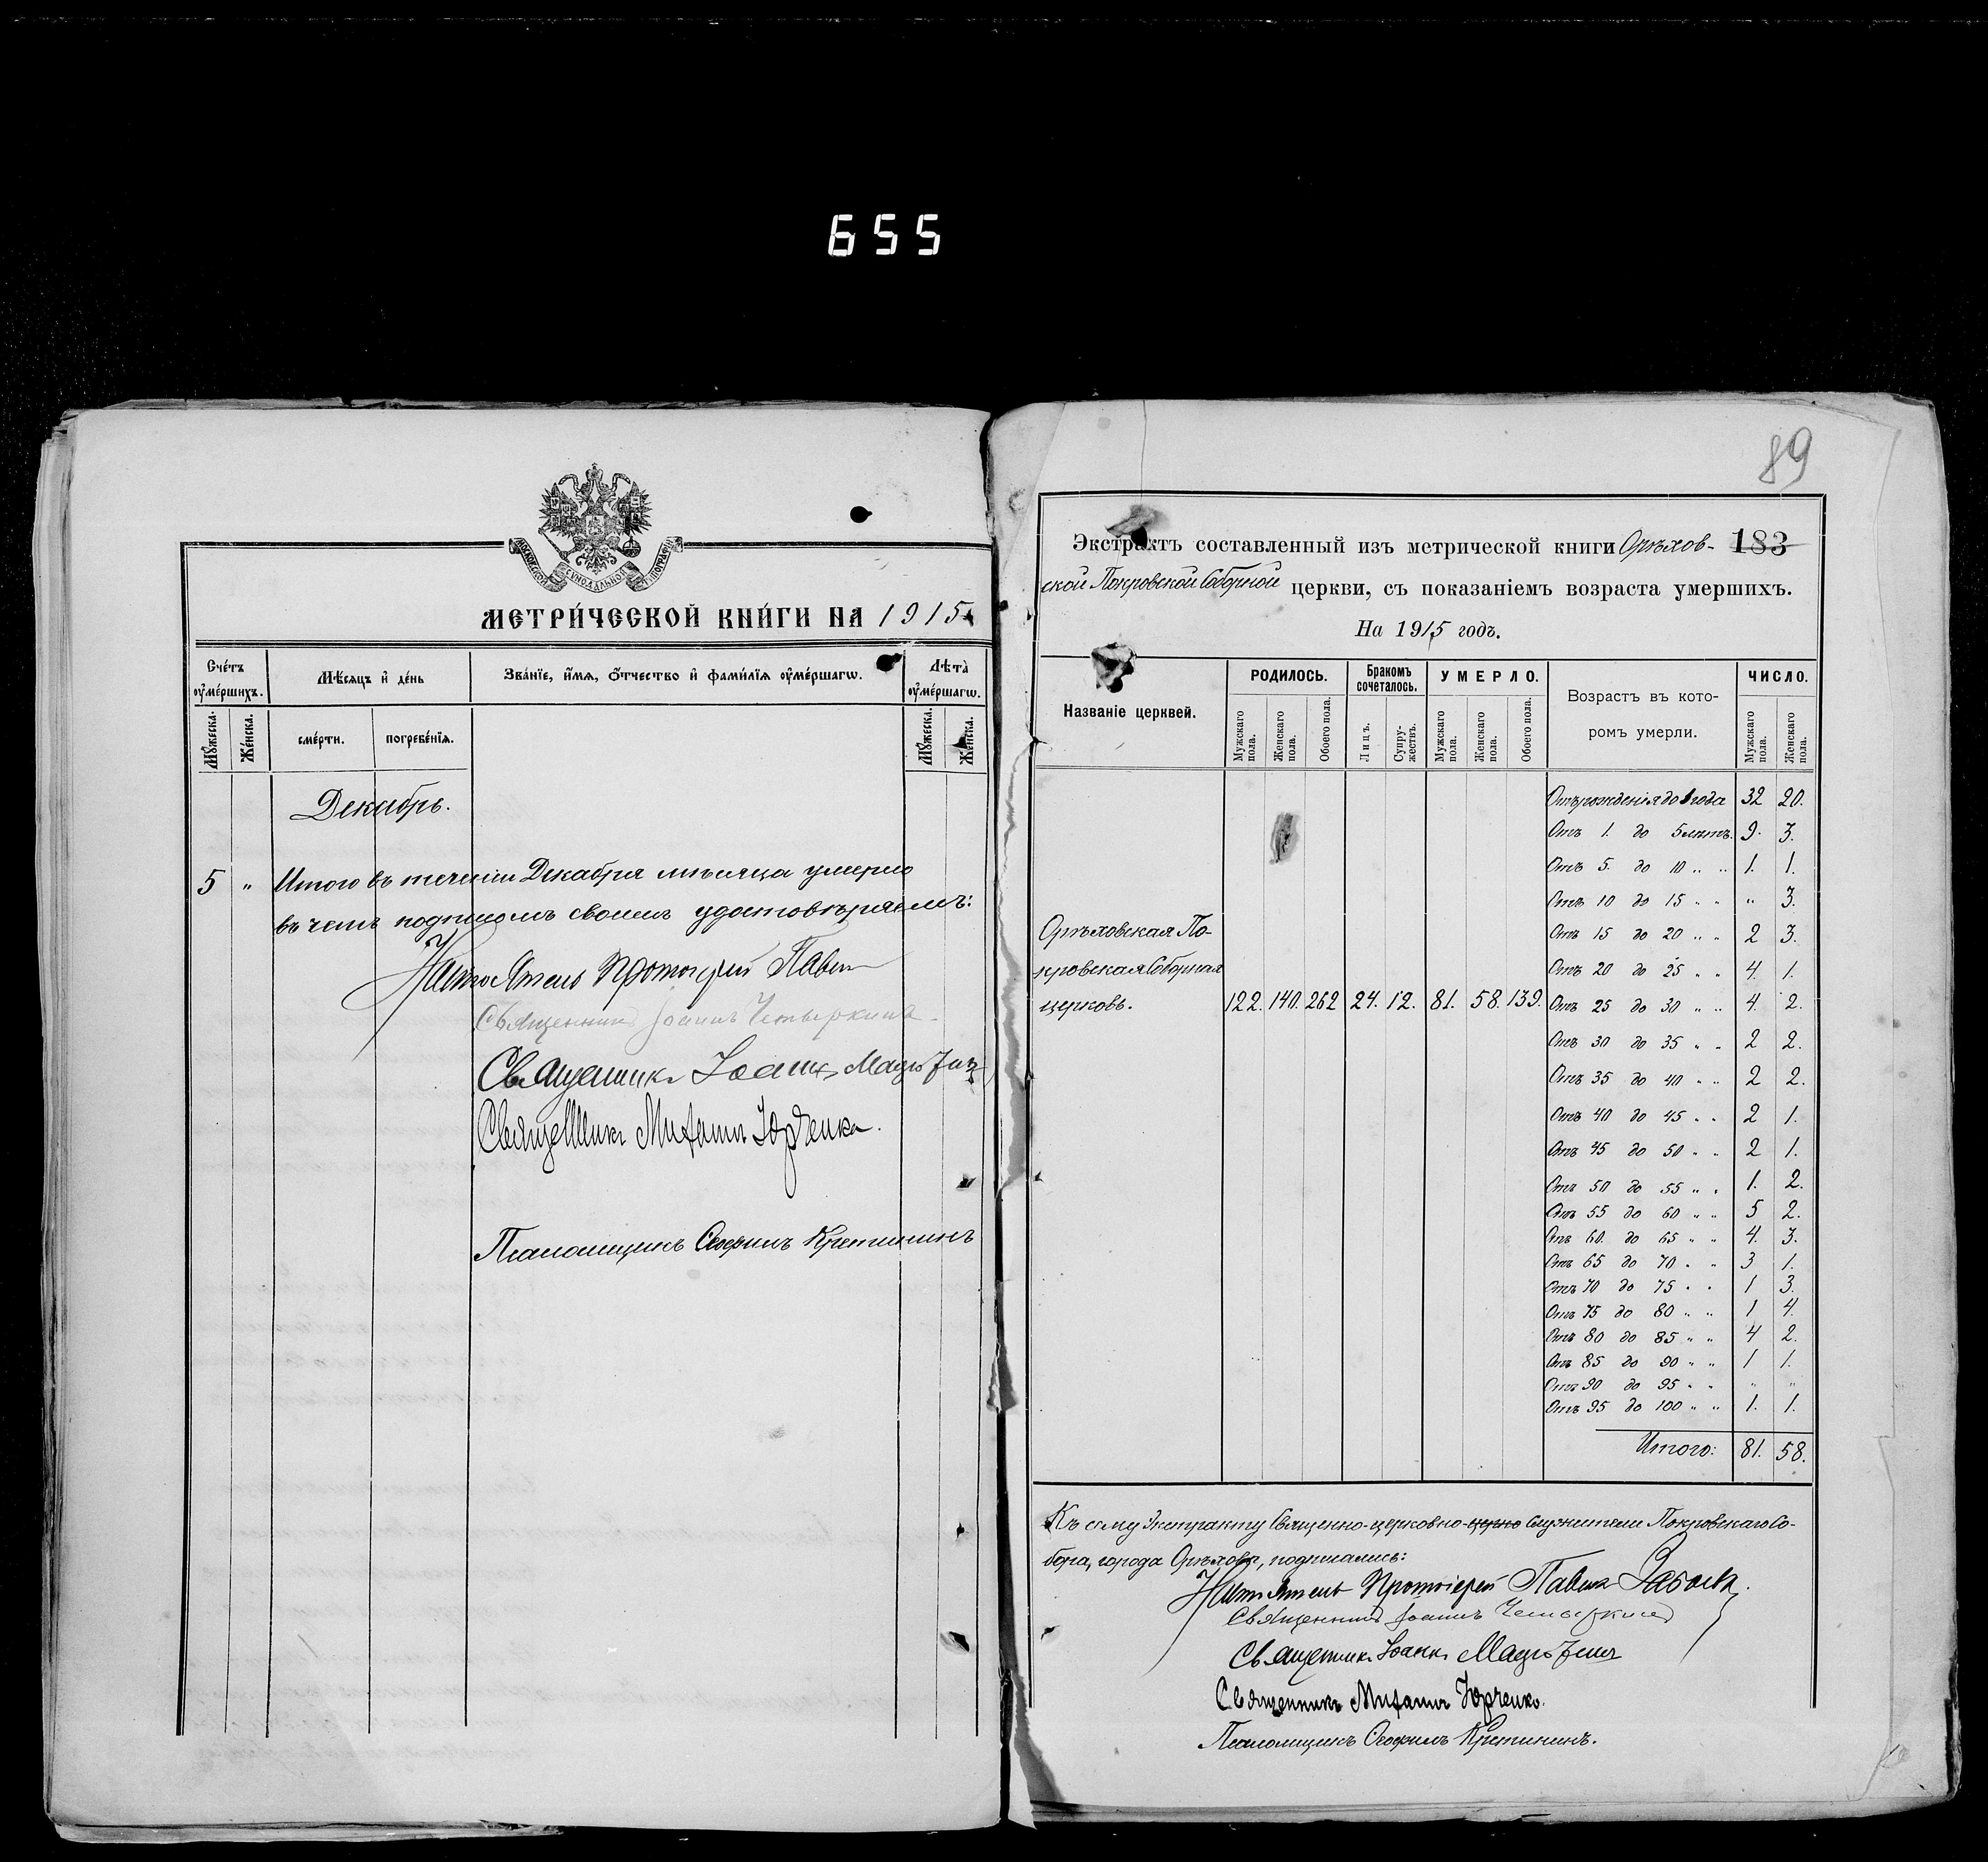 655
МОСКОВСКОЙ СѴНОДАЛЬНОЙ ТѴПОГРАФІИ
МЕТРИ́ЧЕСКОЙ КНИ́ГИ НА 1915
Сче́тъ оу҆ме́ршихъ.
Мѣ́сяцъ и҆ де́нь
Зва́нїе, и҆́мя, о҆́тчество и҆ фами́лїя оу҆ме́ршагѡ.
Лѣта̀ оу҆ме́ршагѡ.
Мꙋ́жеска. Же́нска. сме́рти. погребе́нїя. Мꙋ́жеска. Же́нска.
Декабрь.
5 " Итого въ теченіи Декабря мѣсяца умерло
въ чемъ подписомъ своимъ удостовѣряемъ:
Настоятель Протоіерей Павелъ
Священникъ Іоаннъ Четыркинъ
Священникъ Іоаннъ
Священникъ Михаилъ Юрченко.
Псаломщикъ Ѳеофилъ Кретининъ
89
Экстрактъ составленный изъ метрической книги Орѣхов- 183
ской Покровской Соборной церкви, съ показаніемъ возраста умершихъ.
На 1915 годъ.
Названіе церквей.
РОДИЛОСЬ.
Бракомъ сочеталось.
УМЕРЛО.
Возрастъ въ которомъ умерли.
ЧИСЛО.
Мужскаго пола. Женскаго пола. Обоего пола. Лицъ. Супружествъ. Мужскаго пола. Женскаго пола. Обоего пола. Мужскаго пола. Женскаго пола.
Отъ рожденія до 1 года 32 20.
Отъ 1. до 5 лѣтъ. 9. 3.
Отъ 5. до 10 " " 1. 1.
Отъ 10 до 15 " " " 3.
Орѣховская По-
Отъ 15 до 20 " " 2 3.
кровская Соборная
Отъ 20 до 25 " " 4. 1.
церковь. 122. 140. 262 24. 12. 81. 58. 139. Отъ 25 до 30 " " 4. 2.
Отъ 30 до 35 " " 2 2.
Отъ 35 до 40 " " 2 2.
Отъ 40 до 45 " " 2 1.
Отъ 45 до 50 " " 2 1.
Отъ 50 до 55 " " 1. 2.
Отъ 55 до 60 " " 5 2.
Отъ 60. до 65 " " 4. 3.
Отъ 65 до 70 " " 3 1.
Отъ 70 до 75 " " 1 3.
Отъ 75 до 80 " " 1 4.
Отъ 80 до 85 " " 4 2.
Отъ 85 до 90 " " 1 1.
Отъ 90 до 95 " " " "
Отъ 95 до 100 " " 1. 1.
Итого: 81. 58.
Къ сему Экстракту Священно-церковно-служители Покровскаго Со-
бора, города Орѣхова, подписались:
Настоятель Протоіерей Павелъ
Священникъ Іоаннъ Четыркинъ
Священникъ Іоаннъ
Священникъ Михаилъ Юрченко.
Псаломщикъ Ѳеофилъ Кретининъ.